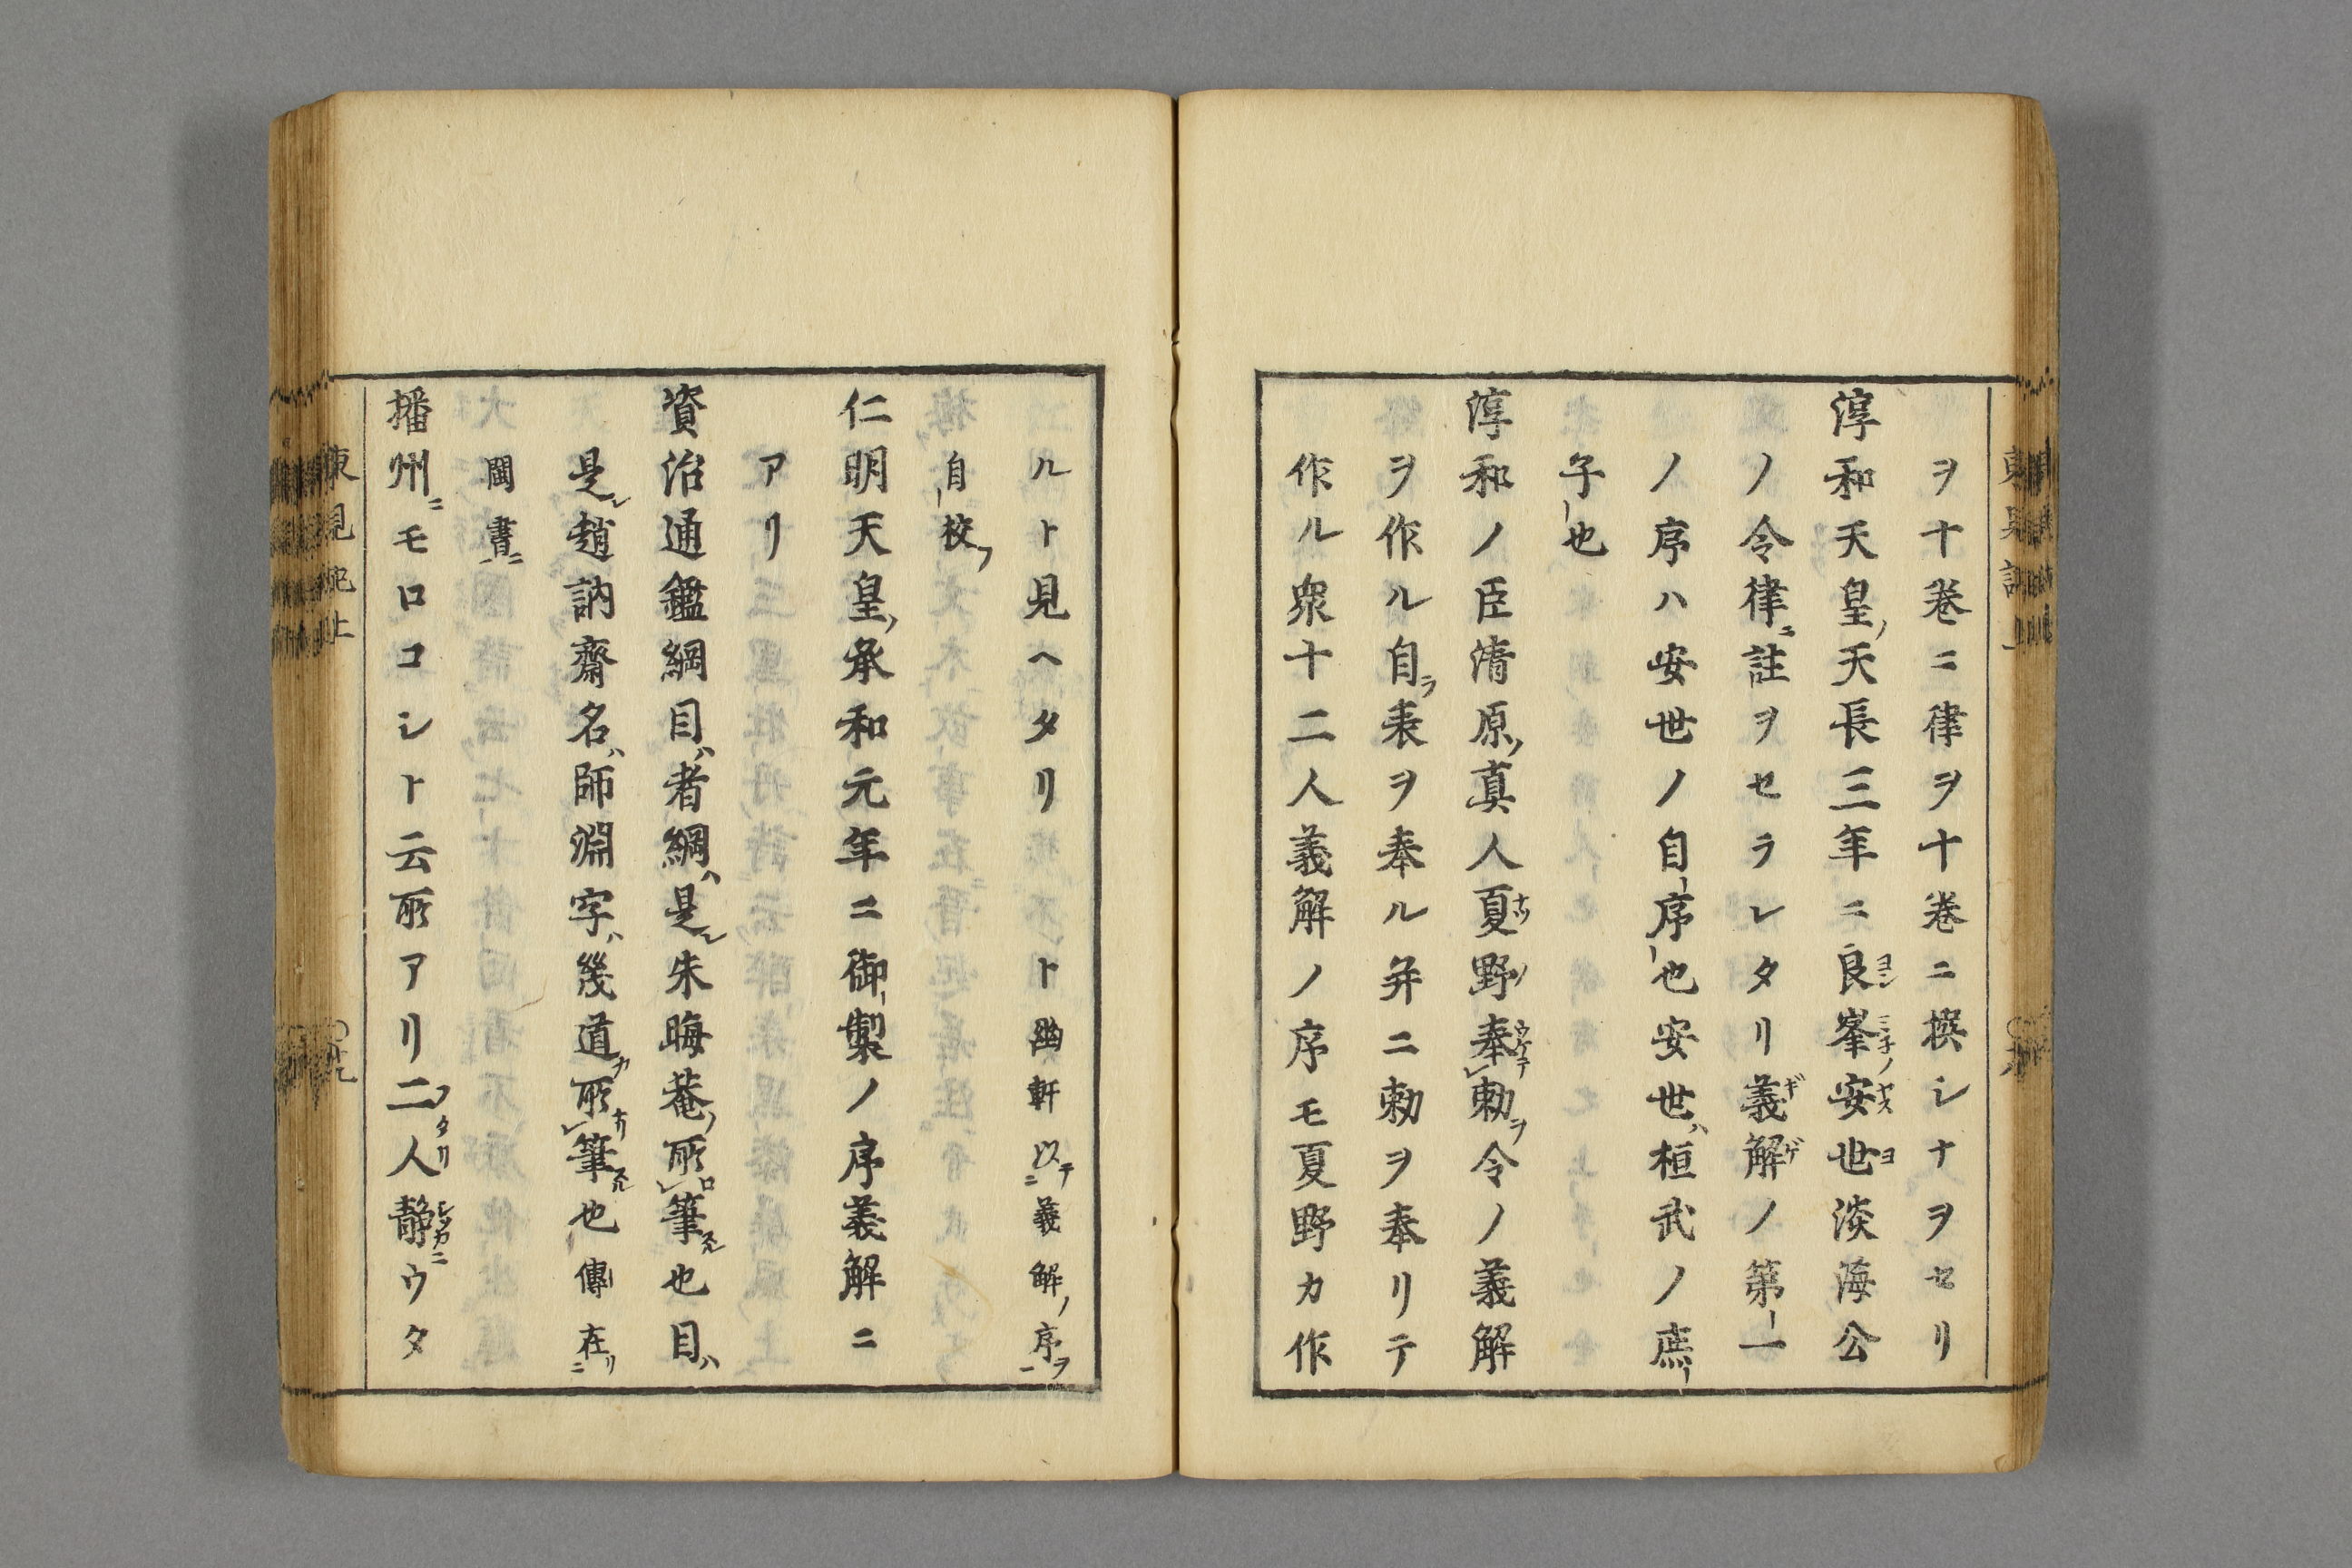 ヲ十巻ニ律ヲ十巻ニ撰シナヲセリ
淳和天皇ノ天長三年ニ良峯安世淡海公
ノ令律ニ註ヲセラレタリ義解ノ第一
ノ序ハ安世ノ自序也安世ハ桓武ノ庶
子也
淳和ノ臣清原ノ真人夏野奉勅ヲ令ノ義解
ヲ作ル自ラ表ヲ奉ル并ニ勅ヲ奉リテ
作ル衆十二人義解ノ序モ夏野カ作
ルト見ヘタリト幽軒以テ義解ノ序ヲ
自校フ
仁明天皇ノ承和元年ニ御製ノ序義解ニ
アリ
資治通鑑綱目ハ者綱ハ是レ朱晦菴ノ所筆也目ハ
是レ趙訥齋名ハ師淵字ハ幾道カ所筆也傳在リ
閩書ニ
播州ニモロコシト云所アリ二人静ウタ